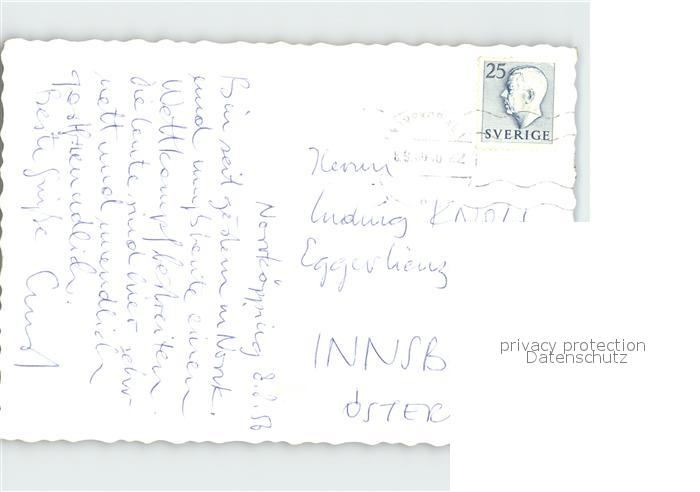 Norrköpping 8.8.56
Bin seit gestern in Norrk.
und muß heute einen
Wettkampf bestreiten.
die Leute sind hier sehr
nett und unendlich
gastfreundlich.
Beste Grüße
25
SVERIGE
Herrn
Ludwig KNOLL
Eggerlienz
INNSB
ÖSTER
privacy protection
Datenschutz